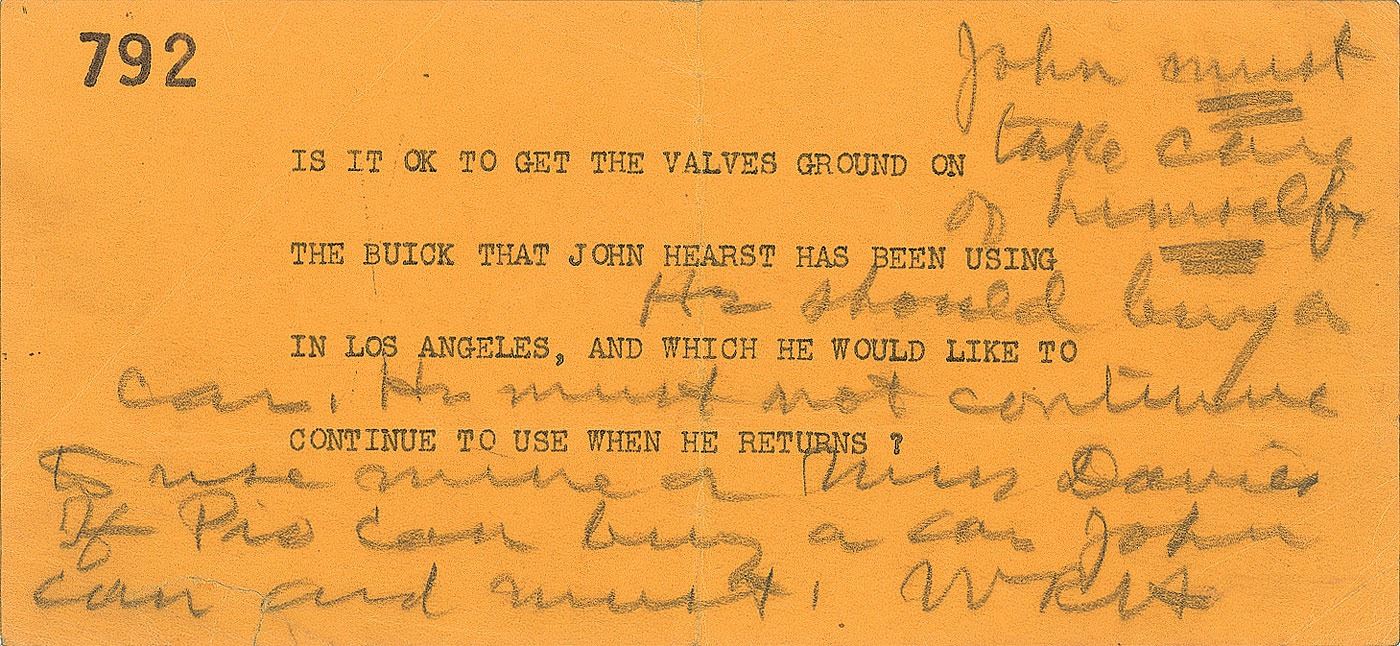 792
IS IT OK TO GET THE VALVES GROUND ON
THE BUICK THAT JOHN HEARST HAS BEEN USING
IN LOS ANGELES, AND WHICH HE WOULD LIKE TO
CONTINUE TO USE WHEN HE RETURNS ?
John must
take care
of himself.
He should buy a
car. He must not continue
to use mine or Miss Davies
If Pio can buy a car John
can and must. WRH